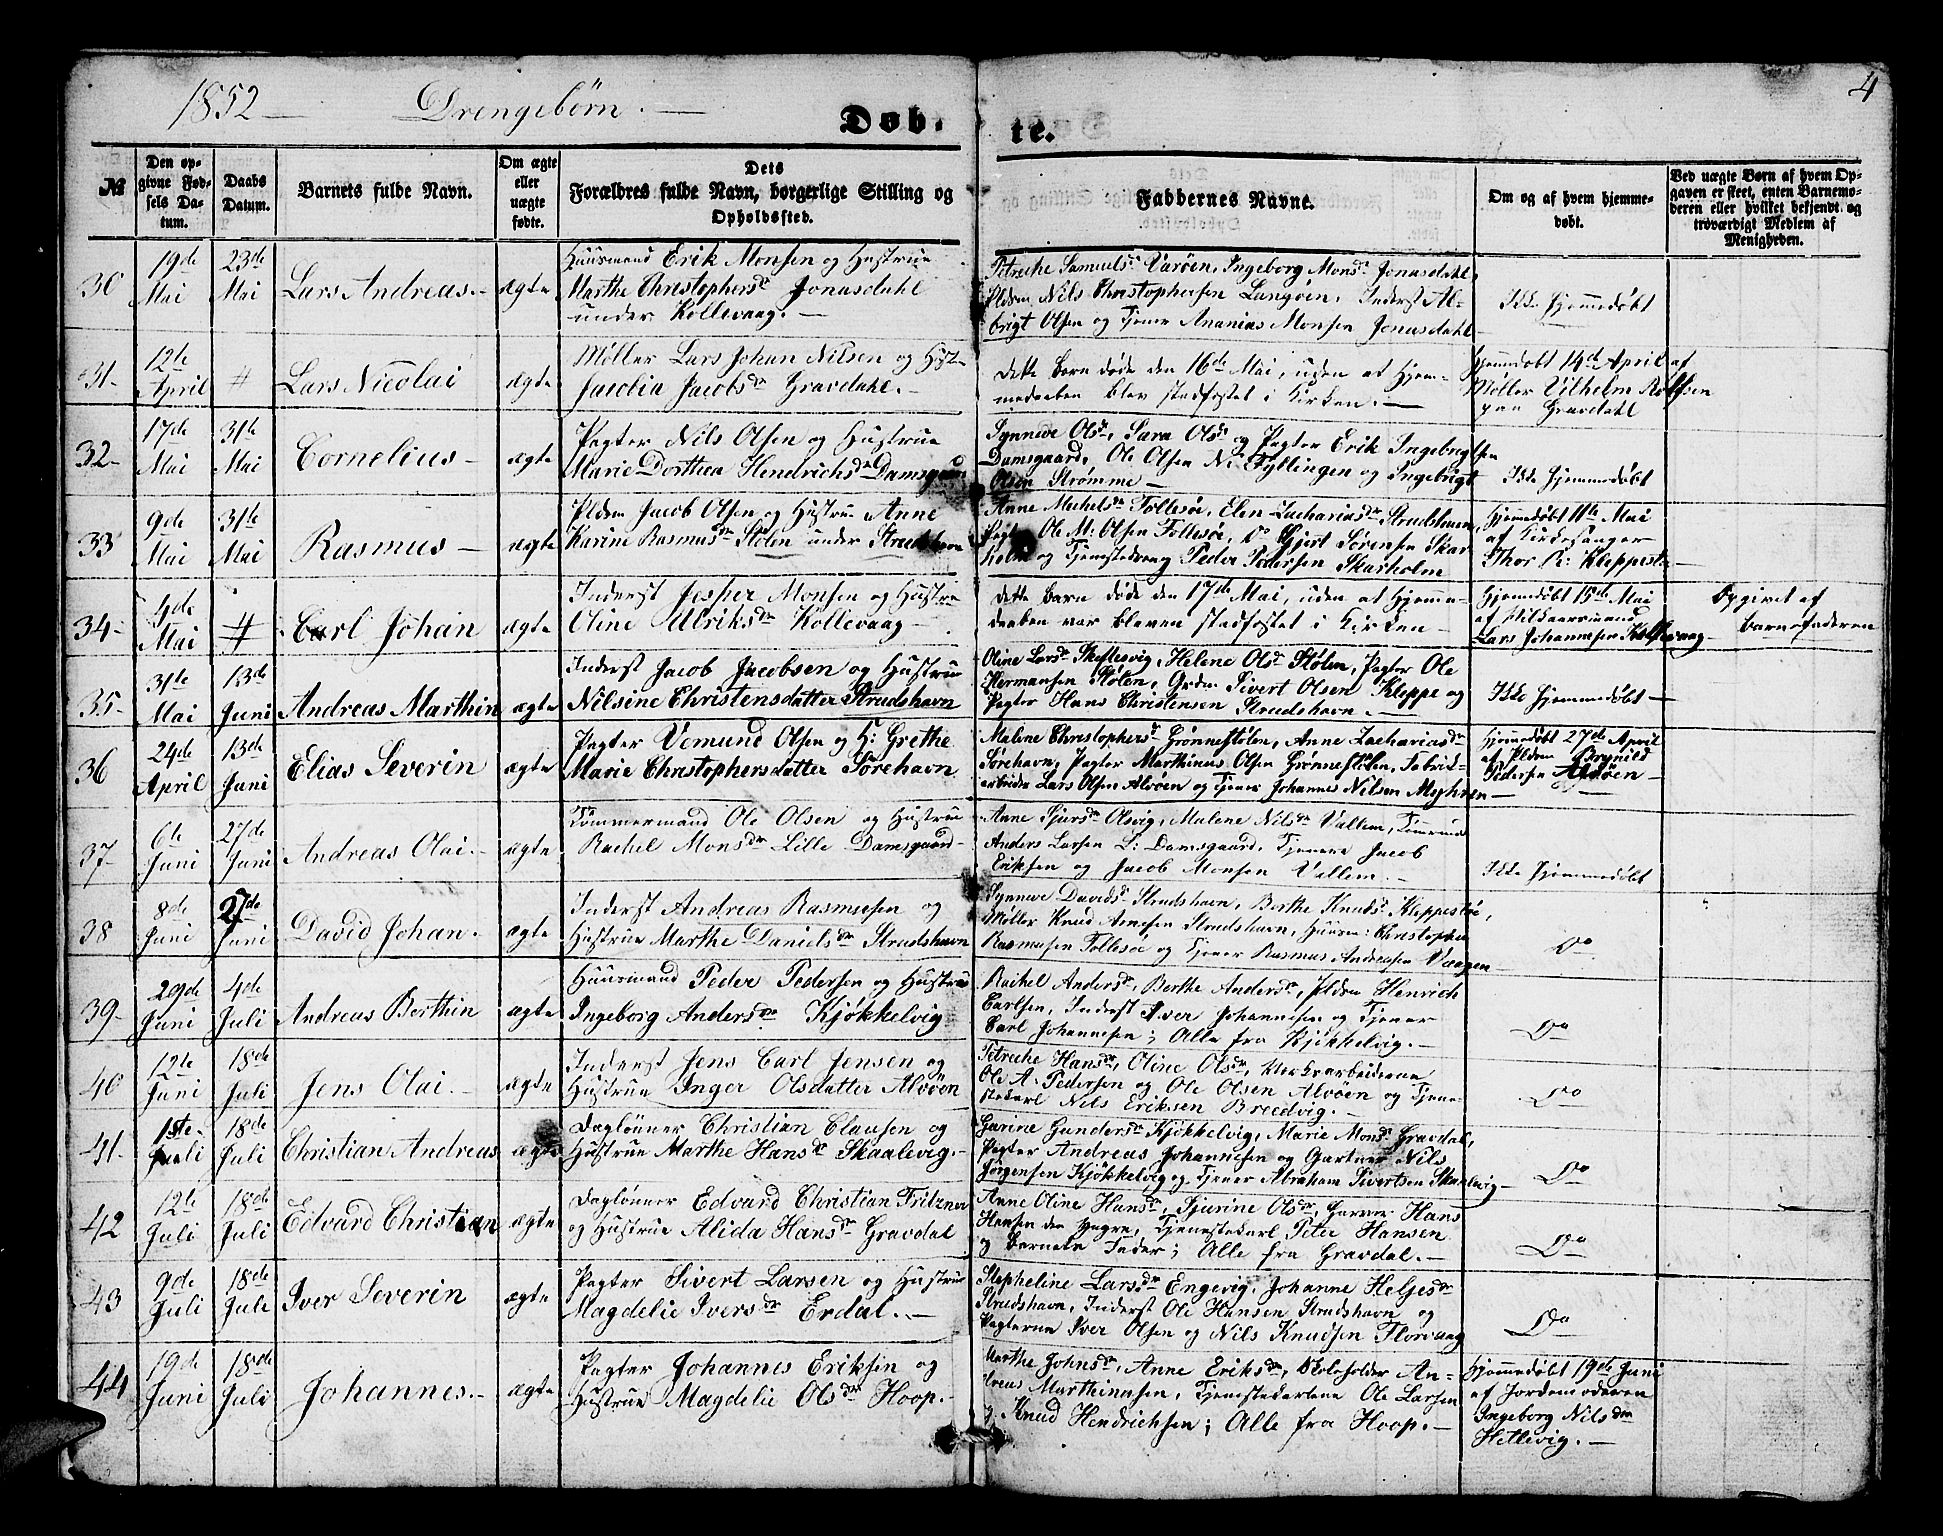 1852 — Drengebørn. —
4
Døb-
te.
№
Den opgivne Fødsels Datum.
Daabs Datum.
Barnets fulde Navn.
Om ægte eller uægte fødte.
Dets Forældres fulde Navn, borgerlige Stilling og Opholdssted.
Faddernes Navne.
Om og af hvem hjemmedøbt.
Ved uægte Børn af hvem Opgaven er skeet, enten Barnemoderen eller hvilket bekjendt og troværdigt Medlem af Menigheden.
30
19de Mai
23de Mai
Lars Andreas.-
ægte
Huusmand Erik Monsen og Hustrue
Marthe Christophersdr Jonasdahl
under Kollevaag. —
Petriche Samuelsdr Varøen, Ingeborg Monsdr Jonasdahl,
Pldsm Nils Christophersen Langøen, Inderst Al-
brigt Olsen og Tjener Ananias Monsen Jonasdahl
Ikke hjemmedøbt
31-
12te April
#
Lars Nicolai
ægte
Møller Lars Johan Nilsen og Hust-
Jacobia Jacobsdr Gravdahl. -
Dette Barn døde den 16de Mai, uden at Hjem-
medaaben blev stadfæstet i Kirken. —
Hjemdøbt 14de April af
Møller Vilhelm Rolfsen
paa Gravdahl
32-
17de Mai
31te Mai
Cornelius -
ægte
Pagter Nils Olsen og Hustrue
Marie Dorthea Hendrichsdr Damsgaard
Synneve Olsdr, Sara Olsdr og Pagter Erik Ingebrigtsen
Damsgaard, Ole Olsen N. Fyllingen og Ingebrigt
Olsen Strømme —
Ikke hjemmedøbt
33
9de Mai
31te Mai
Rasmus -
ægte
Pldsm Jacob Olsen og Hustrue Anne
Karine Rasmusdr Stølen under Strudshavn
Anne Michelsdr Follesø, Elen Zachariasdr Strudshavn,
Pagt. Ole M. Olsen Follesø, Do Gjert Sørensen Skar-
holm og Tjenestedreng Peder Pedersen Skarholm
Hjemmedøbt 11te Mai
af Kirkesanger
Thor P. Kleppestø -
34-
4de Mai
#
Carl Johan
ægte
Inderst Jesper Monsen og Hustrue
Oline Ulriksdr Kollevaag -
Dette Barn døde den 17de Mai, uden at Hjemme-
daaben var bleven stadfæstet i Kirken -
Hjemmedøbt 15de Mai
Lars Johannesen Kollevaag —
Opgivet af
Barnefaderen
35-
31te Mai
13de Juni
Andreas Marthin
ægte
Inderst Jacob Jacobsen og Hustrue
Nilsine Christensdatter Strudshavn
Oline Larsdr Skiftesvig, Helene Olsdr Stølen, Pagter Ole
Hermansen Stølen, Grdm Sivert Olsen Kleppe og
Pagter Hans Christensen Strudshavn. —
Ikke hjemmedøbt —
36
24de April
13de Juni
Elias Severin
ægte
Pagter Vemund Olsen og H: Grethe
Marie Christophersdatter Sørehavn
Malene Christophersdr Grønnestølen, Anne Zachariasdr
Sørehavn, Pagter Marthinus Olsen Grønnestølen, Fabrik-
arbeider Lars Olsen Alvøen og Tjener Johannes Nilsen Myhren
Hjemmedøbt 27de April
af Pldsm Brynild
Pedersen Alvøen -
37-
6te Juni
27de Juni
Andreas Olai.-
ægte
Tømmermand Ole Olsen og Hustrue
Rachel Monsdr Lille Damsgaard -
Anne Sjursdr Olsvig, Malene Nilsdr Vallem, Tømrmd
Anders Larsen L: Damsgaard, Tjenere Jacob
Eriksen og Jacob Monsen Vallem. —
Ikke hjemmedøbt
38
8de Juni
27de Juni
David Johan.
ægte
Inderst Andreas Rasmusen og
Hustrue Marthe Danielsdr Strudshavn
Synneve Davidsdr Strudshavn, Berthe Knudsdr Kleppestøe,
Møller Knud Arnesen Strudshavn, Huusm: Christopher
Rasmusen Follesøe og Tjener Rasmus Andreasen Vaagen -
Do
39-
29de Juni
4de Juli
Andreas Berthin
ægte
Huusmand Peder Pedersen og Hustrue
Ingeborg Andersdr Kjøkkelvig
Rachel Andersdr, Berthe Andersdr, Pldsm Henrich
Carlsen, Inderst Iver Johannesen og Tjener
Carl Johannesen; Alle fra Kjøkkelvig. —
Do
40
12te Juni
18de Juli
Jens Olai. -
ægte
Inderst Jens Carl Jensen og
Hustrue Inger Olsdatter Alvøen
Petriche Hansdr, Oline Olsdr, Værksarbeiderne
Ole A. Pedersen og Ole Olsen Alvøen og Tjene-
stekarl Nils Eriksen Bredvig. —
Do
41.
1ste Juli
18de Juli
Christian Andreas
ægte
Daglønner Christian Clausen og
Hustrue Marthe Hansdr Skaalevig. -
Garine Gundersdr Kjøkkelvig, Marie Monsdr Gravdal,
Pagter Andreas Johannesen og Gartner Nils
Jørgensen Kjøkkelvig og Tjener Abraham Sivertsen Skaalevig -
Do
42
12te Juli
18de Juli
Edvard Christian
ægte
Daglønner Edvard Christian Fritzner
og Hustrue Alida Hansdr Gravdal
Anne Oline Hansdr, Sjurine Olsdr, Garver Hans
Hansen den yngre, Tjenestekarl Peter Hansen
og Barnets Fader; Alle fra Gravdal. —
Do
43
9de Juli
18de Juli
Iver Severin
ægte
Pagter Sivert Larsen og Hustrue
Magdelie Iversdr Erdal. -
Stepheline Larsdr Engevig, Johanne Helgesdr
Strudshavn, Inderst Ole Hansen Strudshavn og
Pagterne Iver Olsen og Nils Knudsen Florvaag
Do
44
19de Juni
18de Juli
Johannes. -
ægte
Pagter Johannes Eriksen og
Hustrue Magdelie Olsdr Hoop. -
Marthe Johnsdr, Anne Eriksdr, Skoleholder An-
dreas Marthinusen, Tjenestekarlene Ole Larsen
og Knud Hendrichsen; Alle fra Hoop. —
Hjemmedøbt 19de Juni
af Jordemoderen
Ingeborg Nilsdr
Hetlevig. —